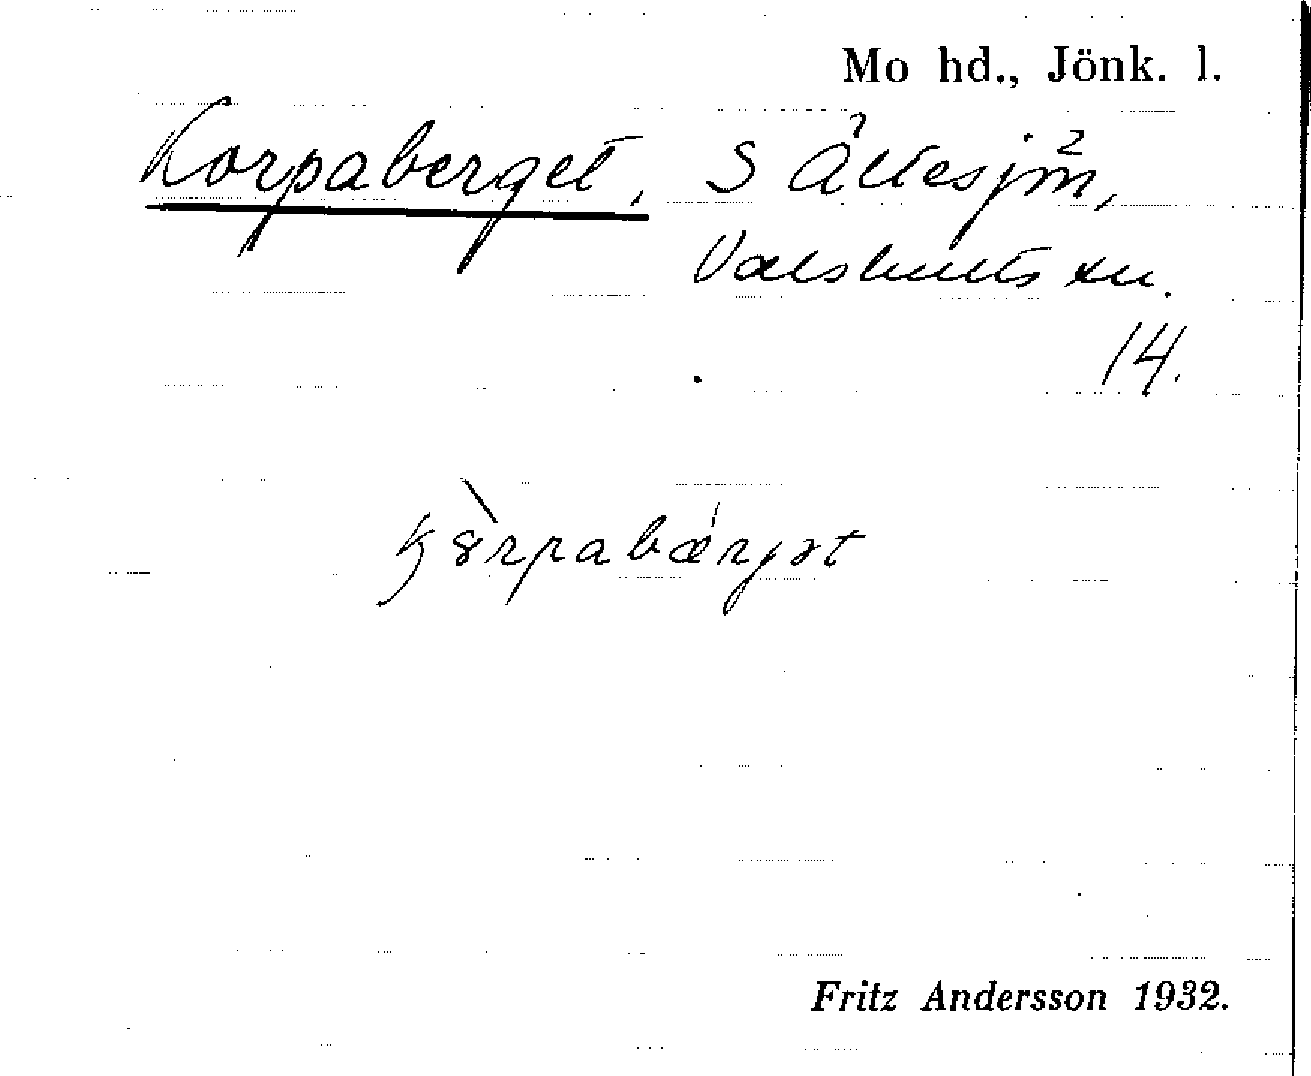 Mo hd., Jönk. l.
Korpaberget, S Ältesjön,
Valshults sn.
14.
kòrpabǽrjət
Fritz Andersson 1932.